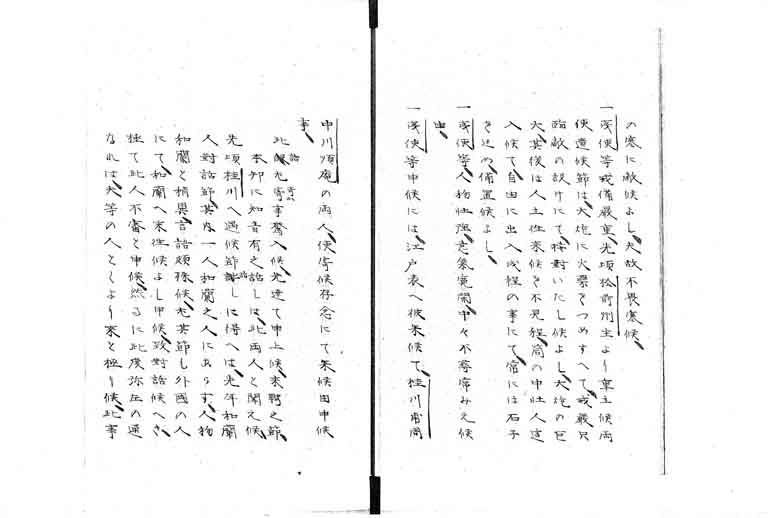 の寒に敵候よし夫故不畏寒候
一彼使等戎備嚴重先頃松前列主より草主候両
使遣候節は大炮に火票をつめすへて戎嚴只
臨敵の設けにて接對いたし候よし大炮の巨
大其後は人主往來候を不見程筒の中壮人這
入候て自由に出入候程の事にて常には石子
を込め備置候よし
一彼使等人物壮強意氣寛闊中々不尋常みえ候
由
一彼使等申候には江戸表へ被来候て桂川甫周
中川順庵の両人便寄候存念にて来候由申候
事
此縁尤寄事奇聞入候先達て申上候来聘之節
本邦に知音有之話しは此両人と聞え候
先頃桂川へ過候節話しに得へは先年和蘭
人對話節其内一人和蘭之人にあらす人物
和蘭と稍異言語頗孫候尤其節も外國の人
にて和蘭へ来往候よし申候致對話候へき
極て此人不審と申候然るに此度弥在の通
なれは夫等の人としより来と極り候此事